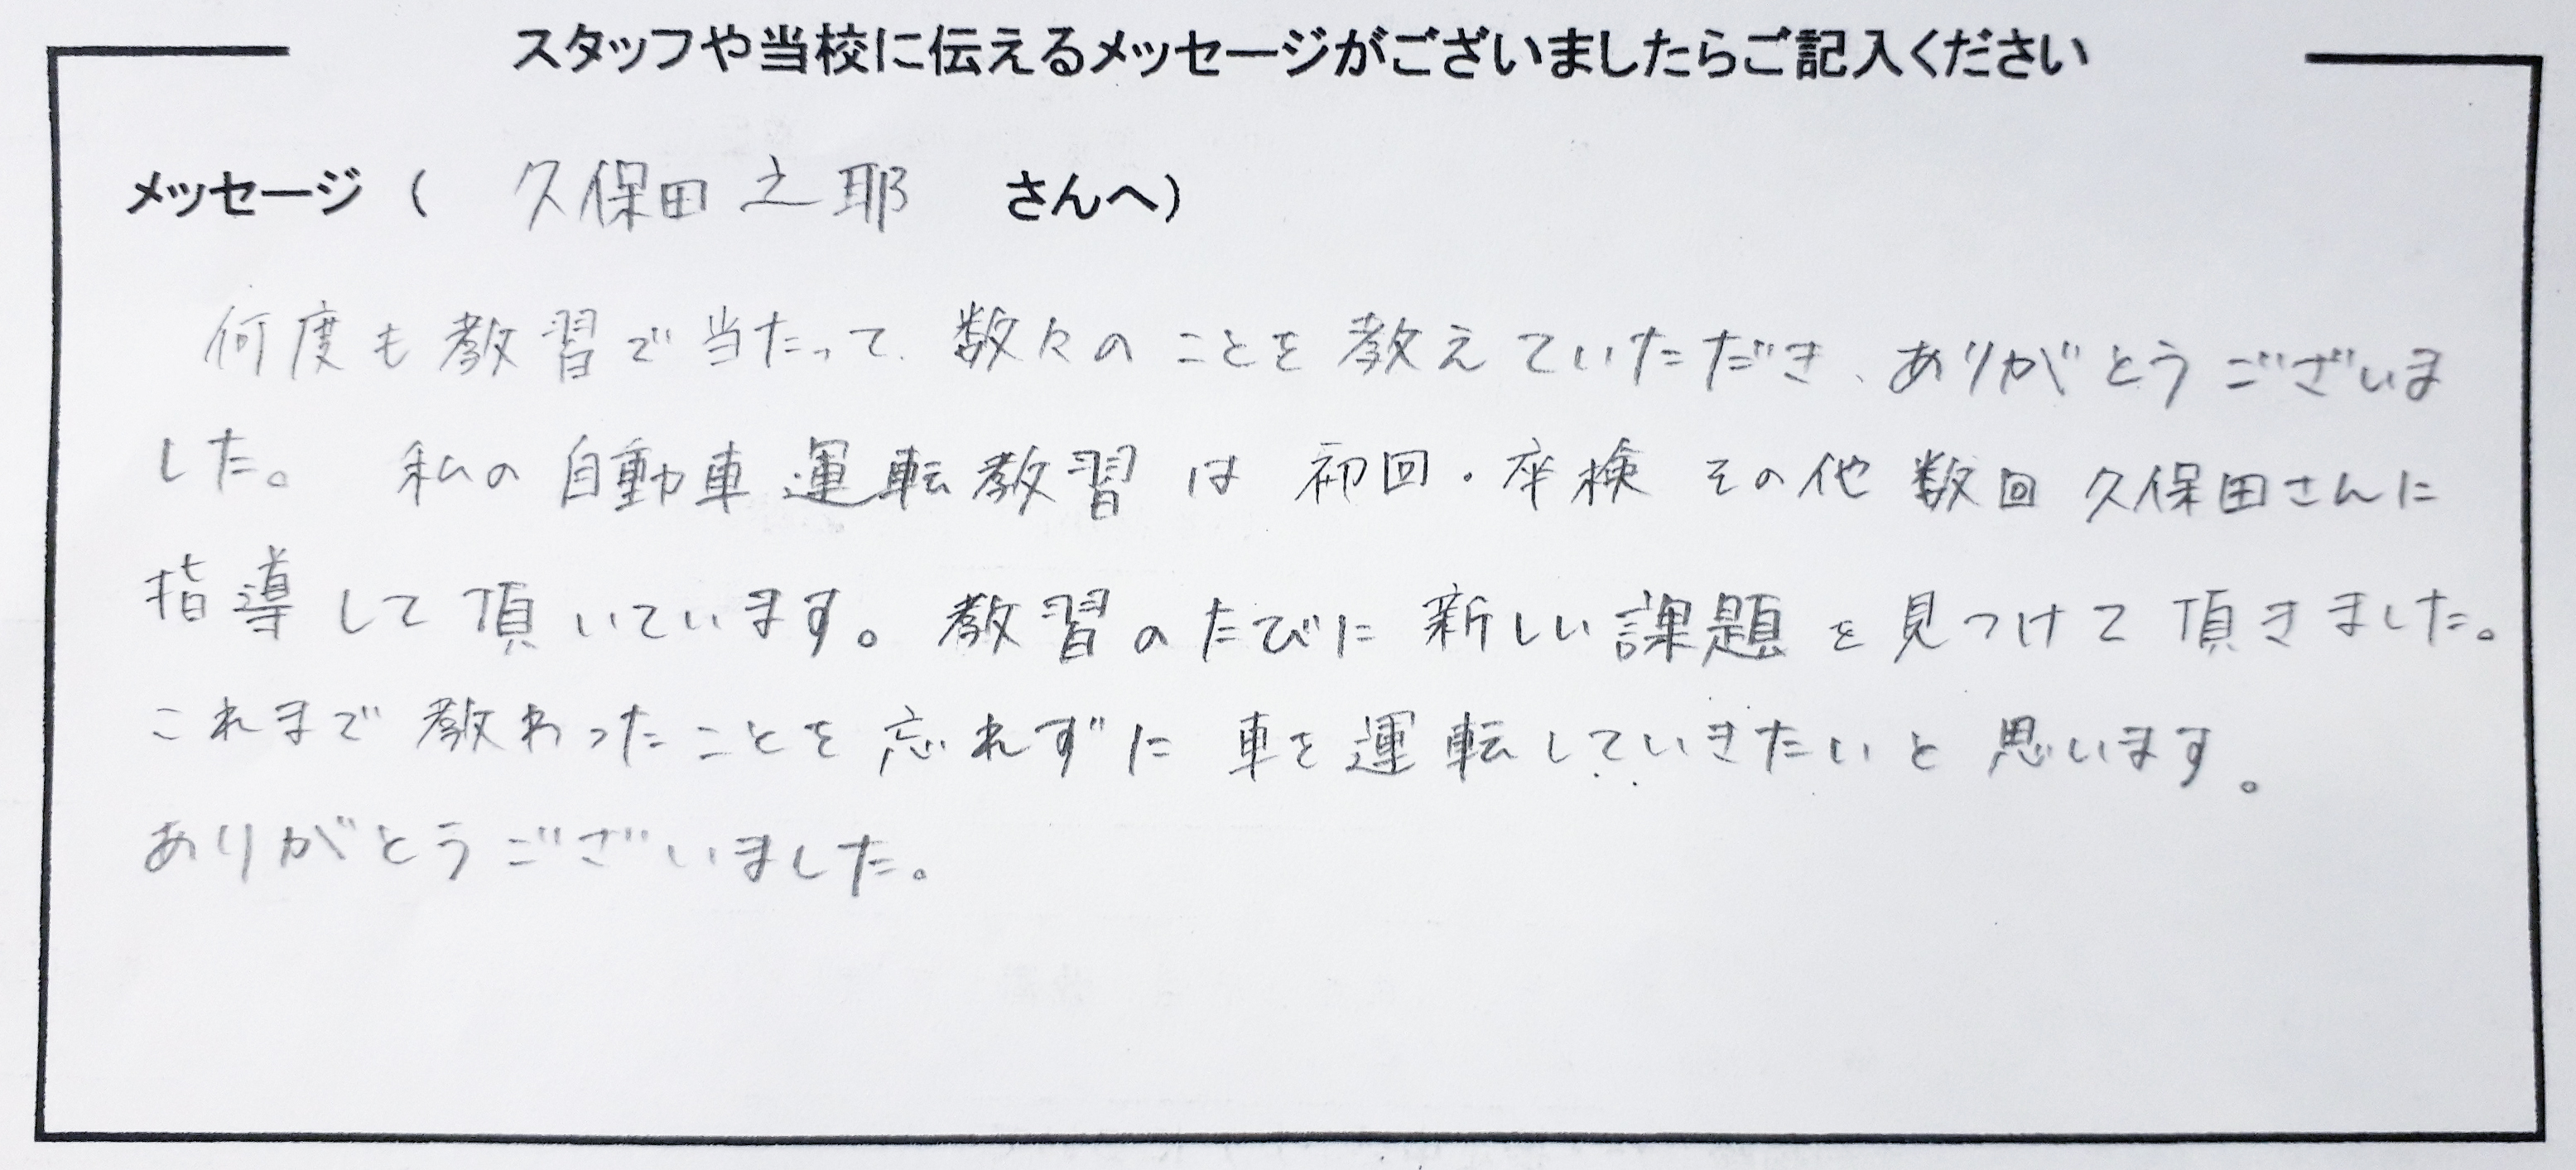 スタッフや当校に伝えるメッセージがございましたらご記入ください
メッセージ（ 久保田之耶 さんへ）
何度も教習で当たって、数々のことを教えていただき、ありがとうございま
した。 私の自動車運転教習は初回・卒検その他数回久保田さんに
指導して頂いています。教習のたびに新しい課題を見つけて頂きました。
これまで教わったことを忘れずに車を運転していきたいと思います。
ありがとうございました。